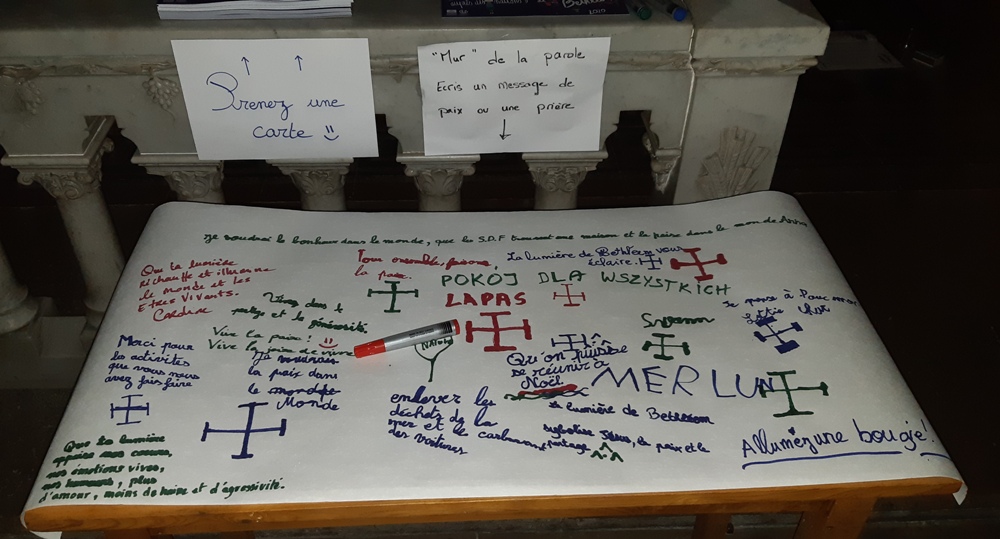 Prenez une
carte
"Mur" de la parole
Ecris un message de
paix ou une prière
Je voudrai le bonheur dans le monde, que les S.D.F trouvent une maison et la paix dans le mon de
Que ta lumière
réchauffe et illumine
le monde et les
Etres Vivants.
Cardine
Tous ensemble, faisons
la paix.
La lumière de Bethléem vous
éclaire.
POKOJ DLA WSZYSTKICH
LAPAS
Vivez dans le
partage et la générosité.
Vive la paix!
Vive la joie de vivre
Je voudrais
la paix dans
le monde
Monde
Merci pour
les activités
que vous nous
avez fais faire
Que ta lumière
apaise nos coeurs,
nos émotions vives,
nos humeurs, plus
d'amour, moins de haine et d'agressivité.
Swann
Je pense à
Qu'on puisse
se réunir à
Noël
MERLUN
enlever les
déchets de la
mer et le carbone
des voitures
La lumière de Bethléem
symbolise Jésus, la paix et le
partage
Allumez une bougie!